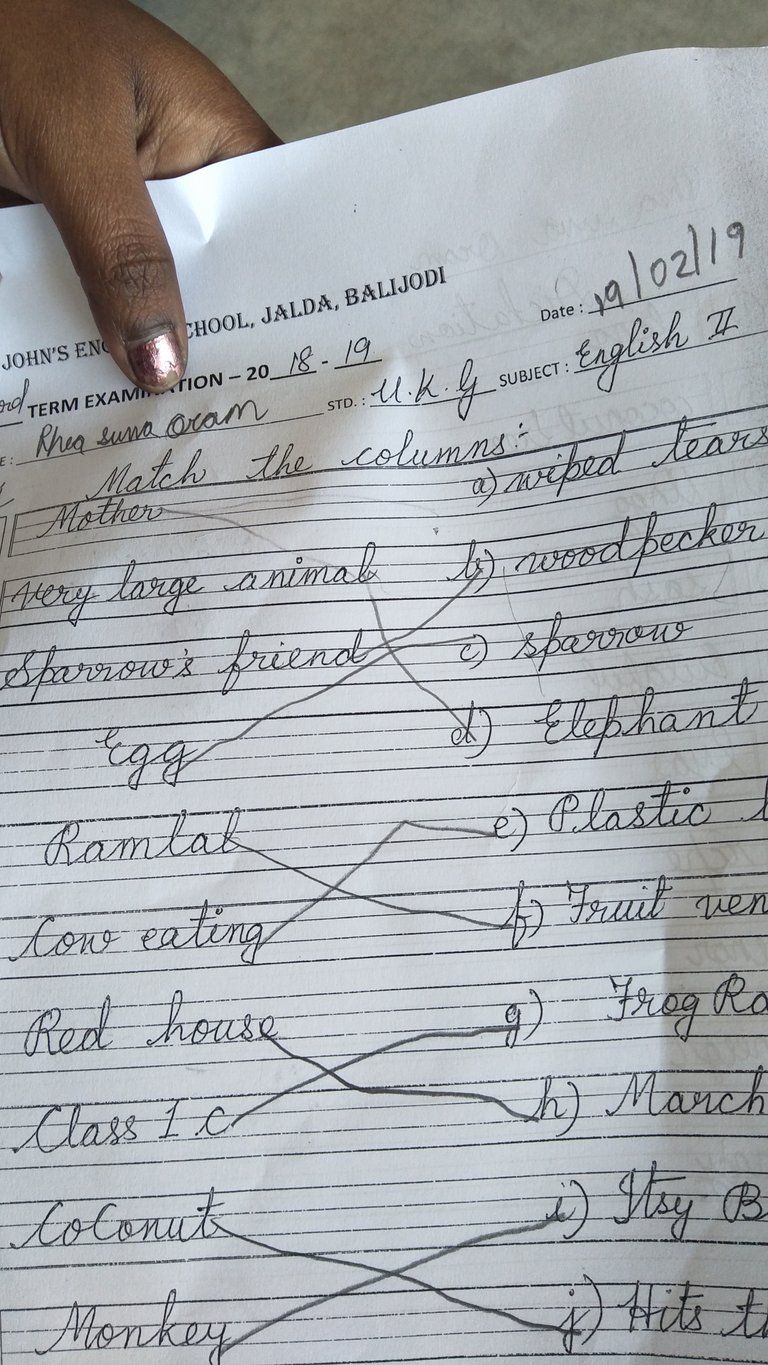 JOHN'S ENG CHOOL, JALDA, BALIJODI
Date : 19/02/19
TERM EXAMINATION – 20 18 - 19
STD. : U.K.G SUBJECT : English II
E : Rhea suna Oram
Match the columns :-
Mother a) wiped tears
Very large animal b) woodpecker
Sparrow's friend c) Sparrow
Egg d) Elephant
Ramlal e) Plastic
Cow eating f) Fruit ven
Red house g) Frog Ra
Class I C h) March
CoConut i) Itsy B
Monkey j) Hits th